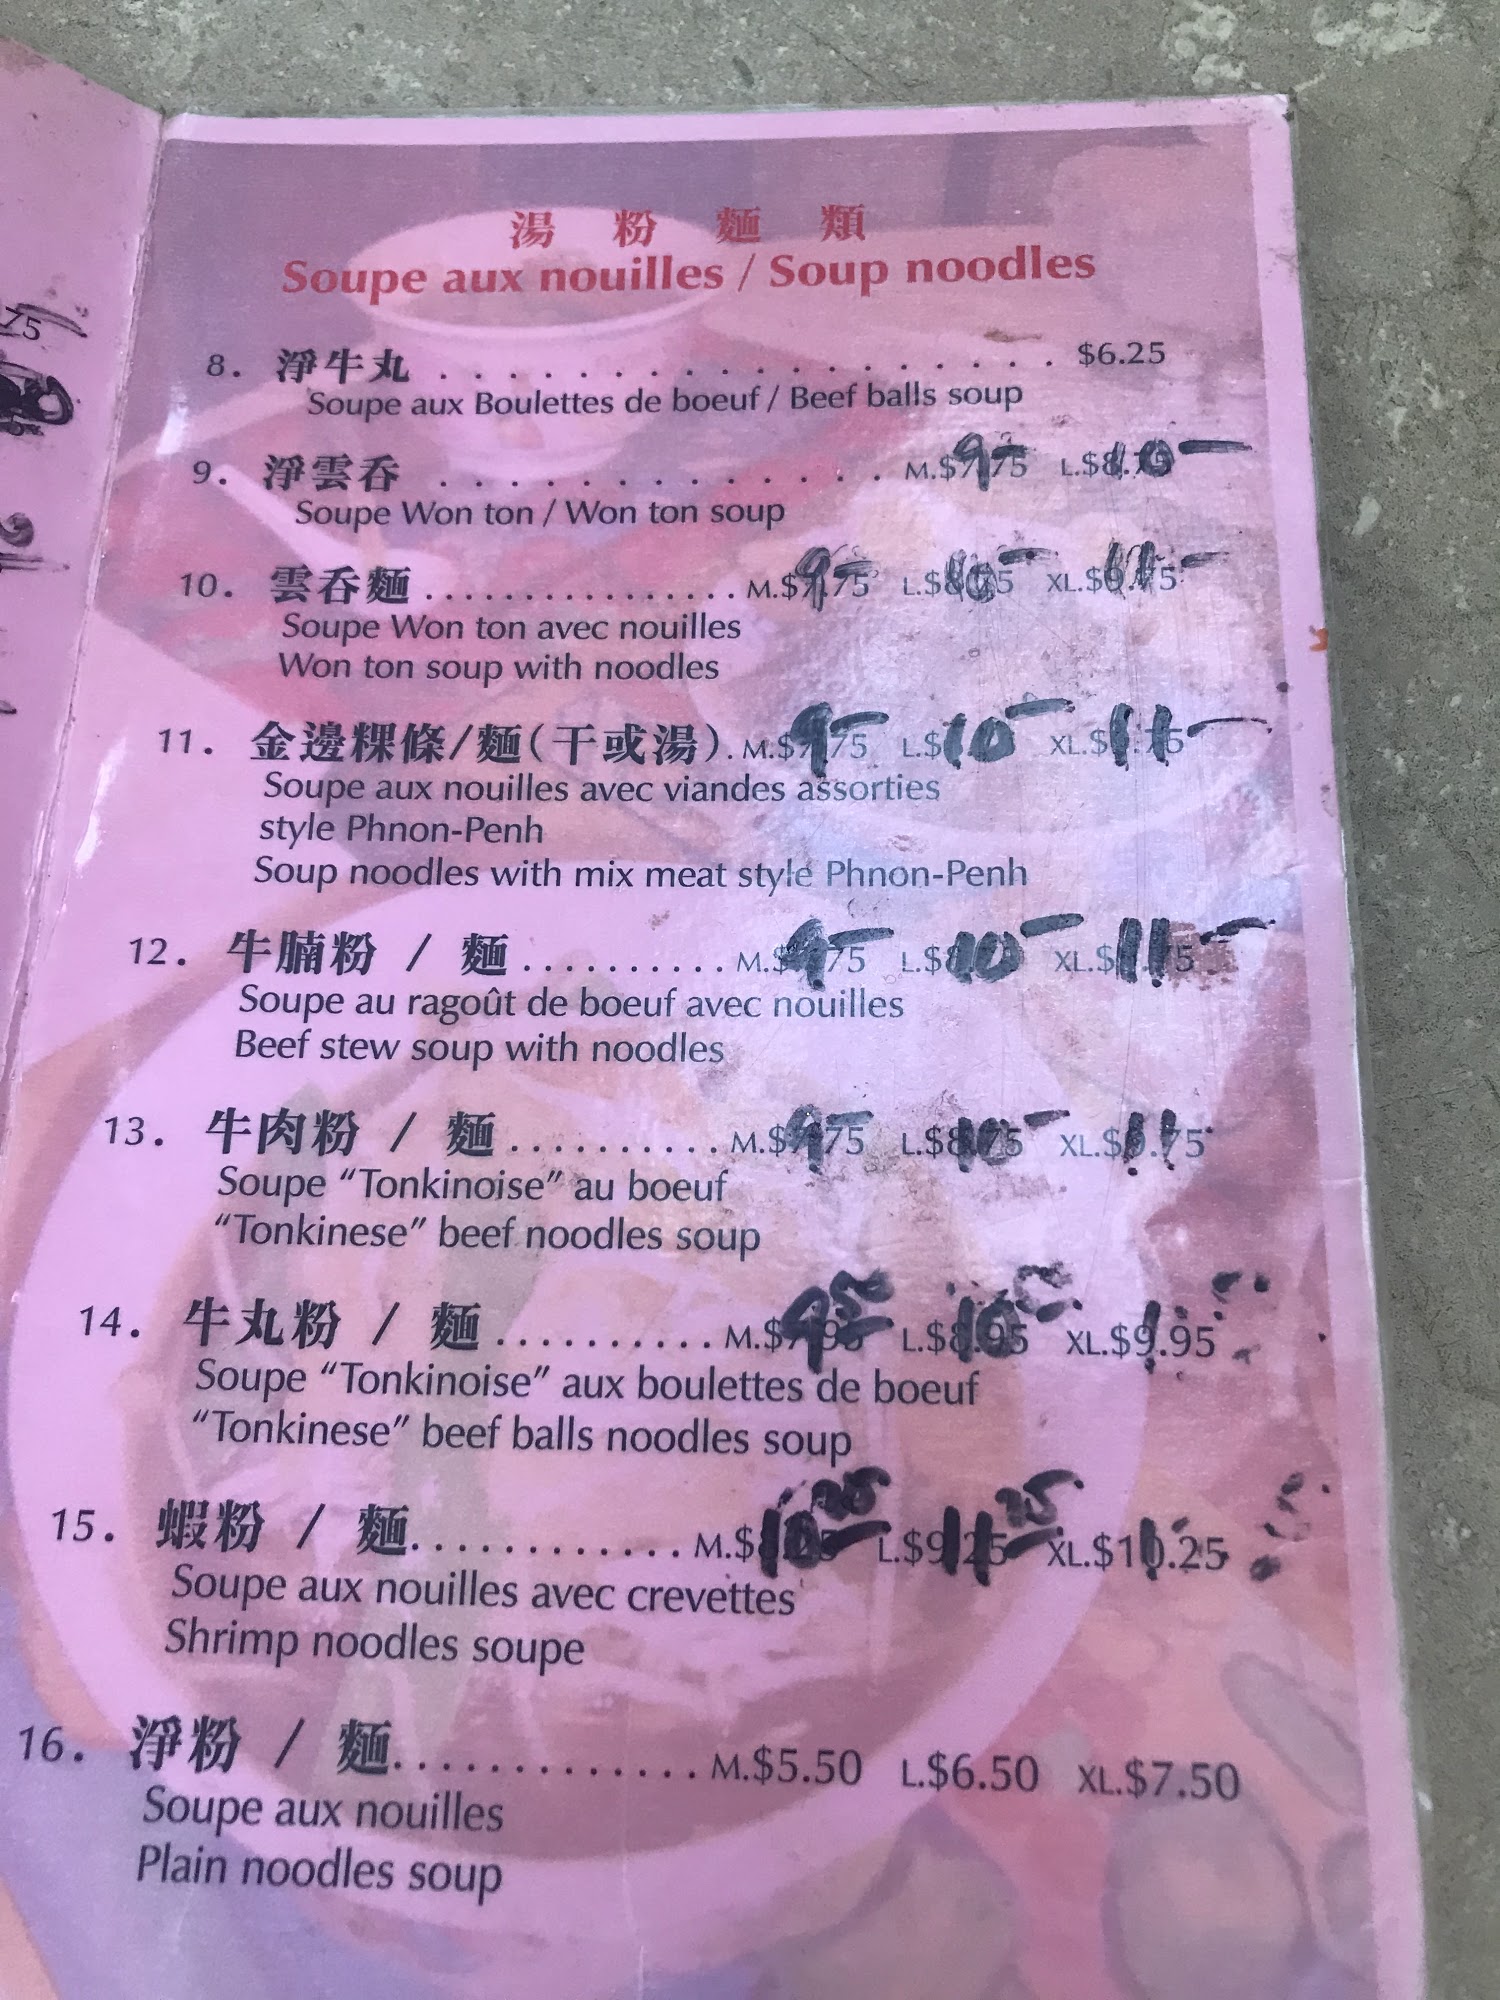 湯粉麵類
Soupe aux nouilles / Soup noodles
8. 淨牛丸 . . . . . . . . . . . . . . . . . . $6.25
Soupe aux Boulettes de boeuf / Beef balls soup
9. 淨雲吞 . . . . . . . . . . . . . M.$7.75 9- L.$8.75 10-
Soupe Won ton / Won ton soup
10. 雲吞麵 ................ M.$7.75 9- L.$8.75 10- XL.$9.75 11-
Soupe Won ton avec nouilles
Won ton soup with noodles
11. 金邊粿條/麵(干或湯). M.$7.75 9- L.$ 10- XL.$9.75 11-
Soupe aux nouilles avec viandes assorties
style Phnon-Penh
Soup noodles with mix meat style Phnon-Penh
12. 牛腩粉 / 麵 .......... M.$7.75 9- L.$8 10- XL.$9.75 11-
Soupe au ragoût de boeuf avec nouilles
Beef stew soup with noodles
13. 牛肉粉 / 麵 .......... M.$7.75 9- L.$8.75 10- XL.$9.75 11
Soupe “Tonkinoise” au boeuf
“Tonkinese” beef noodles soup
14. 牛丸粉 / 麵 .......... M.$7.95 9 50 L.$8.95 10 XL.$9.95
Soupe “Tonkinoise” aux boulettes de boeuf
“Tonkinese” beef balls noodles soup
15. 蝦粉 / 麵............. M.$8.25 10 L.$9.25 11 XL.$10.25
Soupe aux nouilles avec crevettes
Shrimp noodles soupe
16. 淨粉 / 麵.............. M.$5.50 L.$6.50 XL.$7.50
Soupe aux nouilles
Plain noodles soup